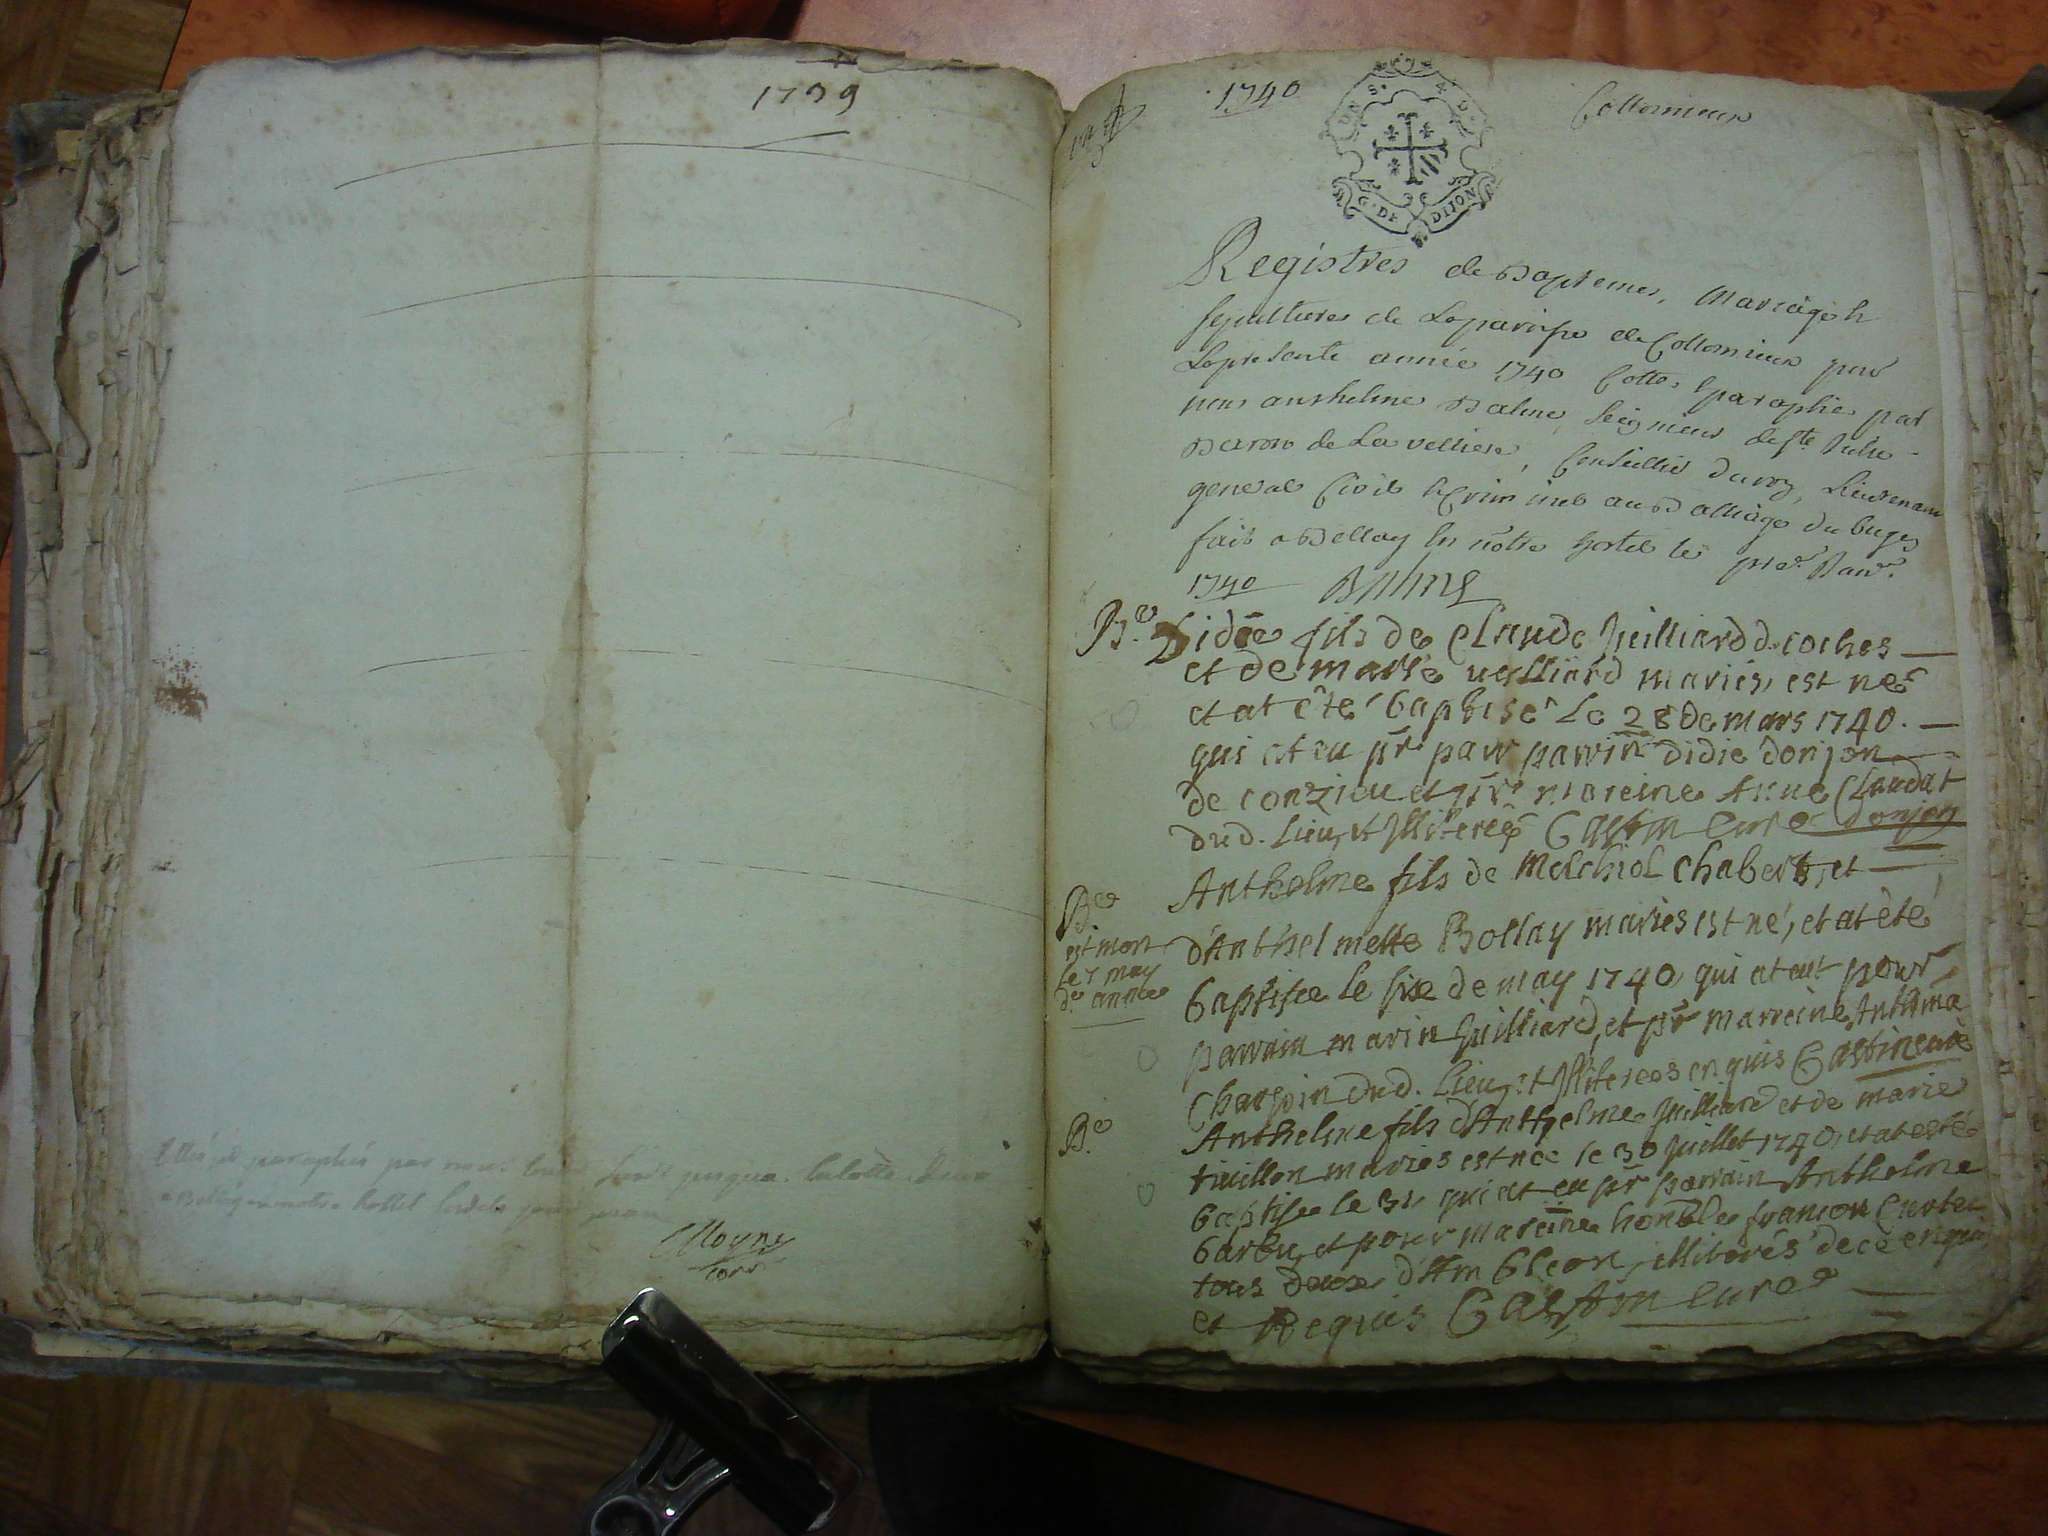 1739
Moyne
1740
Collomieux
G. DE DIJON
Registres de Baptemes, Mariages &
sepultures de La paroisse de Collomieux pour
La presente année 1740 Cottes & paraphés par
nous anthelme Balme, seigneur de ste Julie
Baron de La velliere, Conseiller du roy, Lieutenant
general Civil & Criminel au Balliage du bugey
fait a Belley En nôtre hostel le pier. Janr.
1740 Balme
Be. Didée fils de Claude Juilliard d. coches
et de marie uulliard mariés, est neé
et at ête baptisé Le 28 de mars 1740.
qui at eu pr parrin didie donjon
de conzieu et pr mareine Anne Claudat
dud. Lieu, et Illiterés Gastin curé donjon
Be
est mort
le 7 may
de. année
Anthelme fils de Melchiol Chabert, et
d'Anthelmette Bollay mariés est né, et at èté
baptise le sixe de may 1740, qui at eut pour
parrain marin Juilliard, et pr marreine Anthma
Charpin dud. Lieu, et Illiterés enquis Gastin curé
Be.
Anthelme fils d'Anthelme Juilliard et de marie
tiuillon mariés est née le 30 Juillet 1740, et at esté
baptise le 31, qui at eu pr parrain Anthelme
barbu, et pour mareine honble françon Curtet
tous deux d'Ambleon, illiterés de ce enquis
et Requis Gastin curé